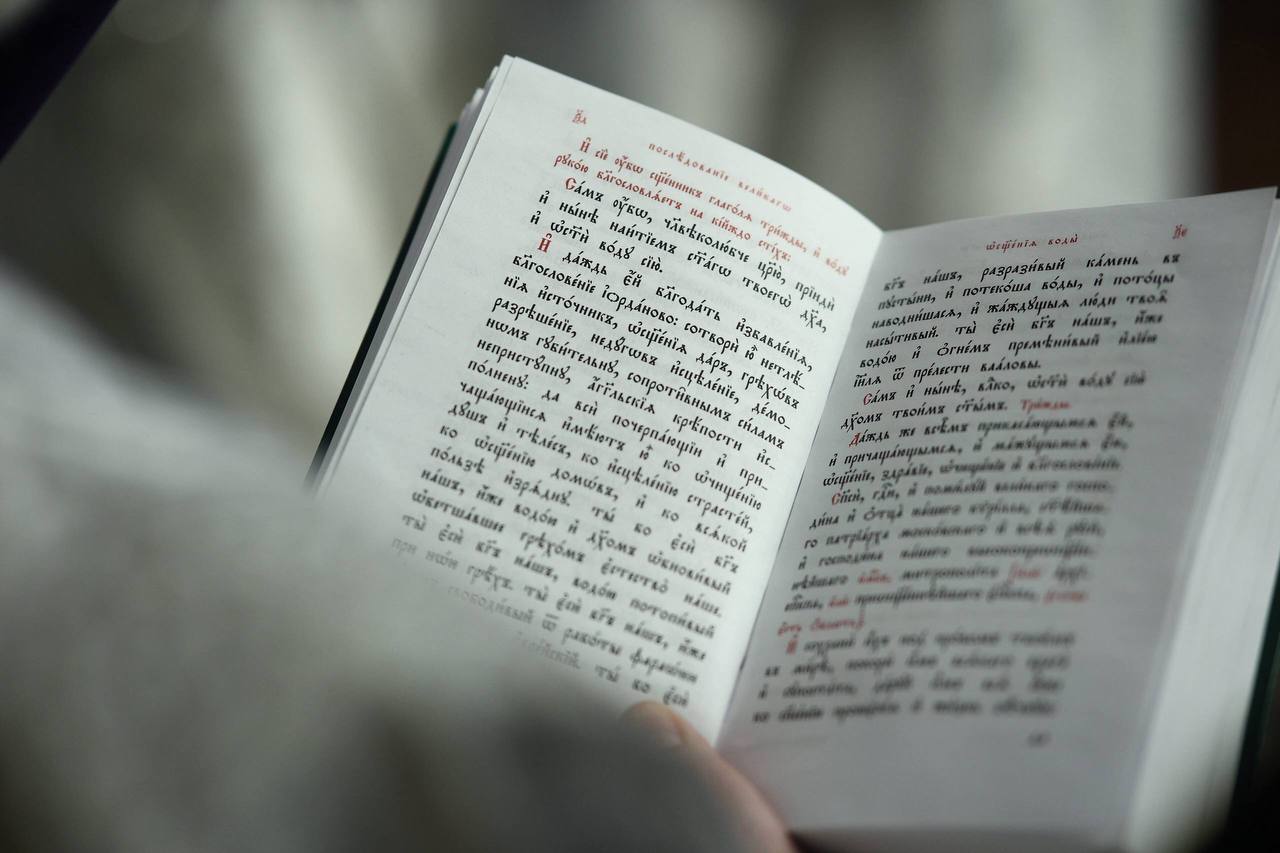 послѣ́дованїе вели́кагѡ
И҆ сїѐ ᲂу҆́бѡ сщ҃е́нникъ глаго́лѧ три́жды, и҆ во́дꙋ
рꙋко́ю бл҃гословлѧ́етъ на кі́йждо сті́хъ:
Са́мъ ᲂу҆́бѡ, чл҃вѣколю́бче цр҃ю̀, прїидѝ
и҆ ны́нѣ наи́тїемъ ст҃а́гѡ твоегѡ̀ дх҃а,
и҆ ѡ҆ст҃ѝ во́дꙋ сїю̀.
И҆ да́ждь є҆́й бл҃года́ть и҆збавле́нїѧ,
бл҃гослове́нїе і҆ѻрда́ново: сотворѝ ю҆̀ нетлѣ́-
нїѧ и҆сто́чникъ, ѡ҆сщ҃е́нїѧ да́ръ, грѣхѡ́въ
разрѣше́нїе, недꙋ́гѡвъ и҆сцѣле́нїе, де́мо-
нѡмъ гꙋби́тельнꙋ, сопроти́внымъ си́ламъ
непристꙋ́пнꙋ, а҆́гг҃льскїѧ крѣ́пости и҆с-
по́лненꙋ: да всѝ почерпа́ющїи и҆ при-
чаща́ющїисѧ и҆мѣ́ютъ ю҆̀ ко ѡ҆чище́нїю
дꙋ́шъ и҆ тѣле́съ, ко и҆сцѣле́нїю страсте́й,
ко ѡ҆сщ҃е́нїю домѡ́въ, и҆ ко всѧ́кой
по́льзѣ и҆зрѧ́днꙋ. ты́ бо є҆сѝ бг҃ъ
на́шъ, и҆́же водо́ю и҆ дх҃омъ ѡ҆бнови́вый
ѡ҆бетша́вшее грѣхо́мъ є҆стество̀ на́ше.
ты̀ є҆сѝ бг҃ъ на́шъ, водо́ю потопи́вый
при нѡ́и грѣ́хъ. ты̀ є҆сѝ бг҃ъ на́шъ, и҆́же
свободи́вый ѿ рабо́ты фараѡ́ни
ты́ бо є҆сѝ
ѡ҆сщ҃е́нїѧ воды̀
бг҃ъ на́шъ, разрази́вый ка́мень въ
пꙋсты́ни, и҆ потеко́ша во́ды, и҆ пото́цы
наводни́шасѧ, и҆ жа́ждꙋщыѧ лю́ди твоѧ̑
насы́тивый. ты̀ є҆сѝ бг҃ъ на́шъ, и҆́же
водо́ю и҆ ѻ҆гне́мъ премѣни́вый и҆лїе́ю
і҆и҃лѧ ѿ пре́лести ваа́ловы.
Са́мъ и҆ ны́нѣ, вл҃ко, ѡ҆ст҃ѝ во́дꙋ сїю̀
дх҃омъ твои́мъ ст҃ы́мъ. Три́жды.
Да́ждь же всѣ̑мъ прикаса́ющымсѧ є҆́й,
и҆ причаща́ющымсѧ, и҆ ма́жꙋщымсѧ є҆́ю,
ѡ҆сщ҃е́нїе, здра́вїе, ѡ҆чище́нїе и҆ бл҃гослове́нїе.
Сп҃сѝ, гд҃и, и҆ поми́лꙋй вели́каго госпо-
ди́на и҆ ѻ҆тца̀ на́шего
го патрїа́рха моско́вскаго и҆ всеѧ̀ рꙋсѝ,
и҆ господи́на на́шего
митрополі́та